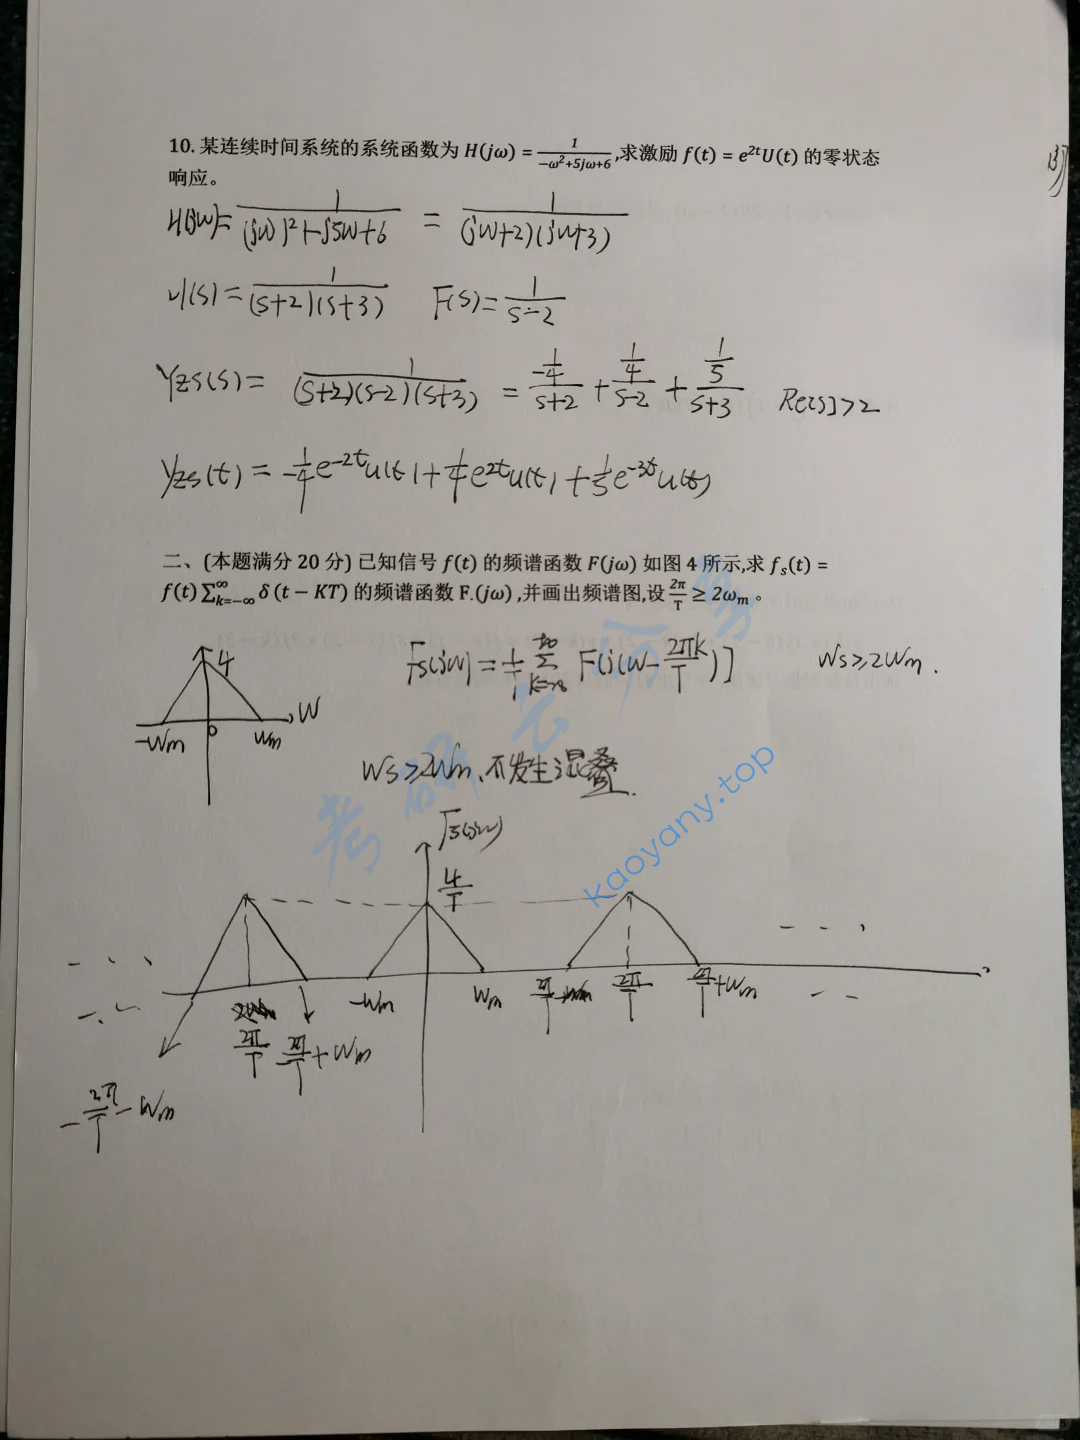 10. 某连续时间系统的系统函数为 H(jω) = 1/(-ω²+5jω+6) ,求激励 f(t) = e^{2t}U(t) 的零状态
响应。
H(jw)= 1/((jw)²+j5w+6) = 1/((jw+2)(jw+3))
H(s) = 1/((s+2)(s+3)) F(s) = 1/(s-2)
Yzs(s) = 1/((s+2)(s-2)(s+3)) = (-1/4)/(s+2) + (1/4)/(s-2) + (1/5)/(s+3) Re[s]>2
Yzs(t) = -1/4 e^{-2t}u(t) + 1/4 e^{2t}u(t) + 1/5 e^{-3t}u(t)
二、(本题满分 20 分) 已知信号 f(t) 的频谱函数 F(jω) 如图 4 所示,求 f_s(t) =
f(t)∑_{k=-∞}^{∞} δ(t − KT) 的频谱函数 F.(jω) ,并画出频谱图,设 2π/T ≥ 2ω_m 。
4
-Wm 0 Wm W
Fs(jw) = 1/T ∑_{K=-∞}^{+∞} F[j(w-2πk/T)] Ws≥2Wm.
Ws≥2Wm、不发生混叠.
Fs(jw)
4/T
-Wm Wm 2π/T-Wm 2π/T 2π/T+Wm
2π/T 2π/T+Wm
-2π/T-Wm
考研云分享
kaoyany.top